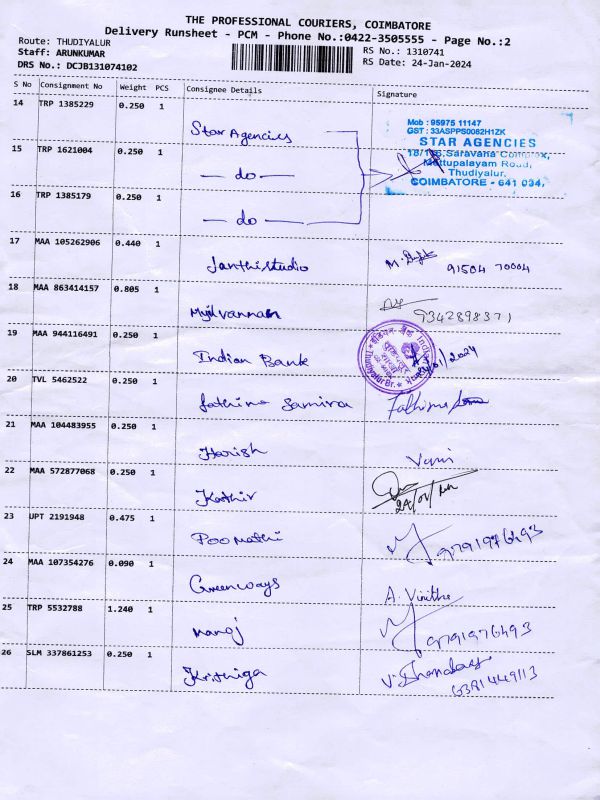 THE PROFESSIONAL COURIERS, COIMBATORE
Delivery Runsheet - PCM - Phone No.:0422-3505555 - Page No.:2
Route: THUDIYALUR
RS No.: 1310741
Staff: ARUNKUMAR
RS Date: 24-Jan-2024
DRS No.: DCJB131074102
S No Consignment No Weight PCS Consignee Details Signature
14 TRP 1385229 0.250 1 Star Agencies
Mob : 95975 11147
GST : 33ASPPS0082H1ZK
STAR AGENCIES
Saravana Complex,
Mettupalayam Road,
Thudiyalur,
COIMBATORE - 641 034.
15 TRP 1621004 0.250 1 — do —
16 TRP 1385179 0.250 1 — do —
17 MAA 105262906 0.440 1 Janthistudio M. 91504 70004
18 MAA 863414157 0.805 1 Mylvannan 9342898371
19 MAA 944116491 0.250 1 Indian Bank
Thudiyalur Br.
20 TVL 5462522 0.250 1 fathima Samira Fathima
21 MAA 104483955 0.250 1 Harish Vani
22 MAA 572877068 0.250 1 Kathir
23 UPT 2191948 0.475 1 Poomathi 9791976493
24 MAA 107354276 0.090 1 Greenways A. Vinitha
25 TRP 5532788 1.240 1 manoj 9791976493
26 SLM 337861253 0.250 1 Krithiga
6381449113